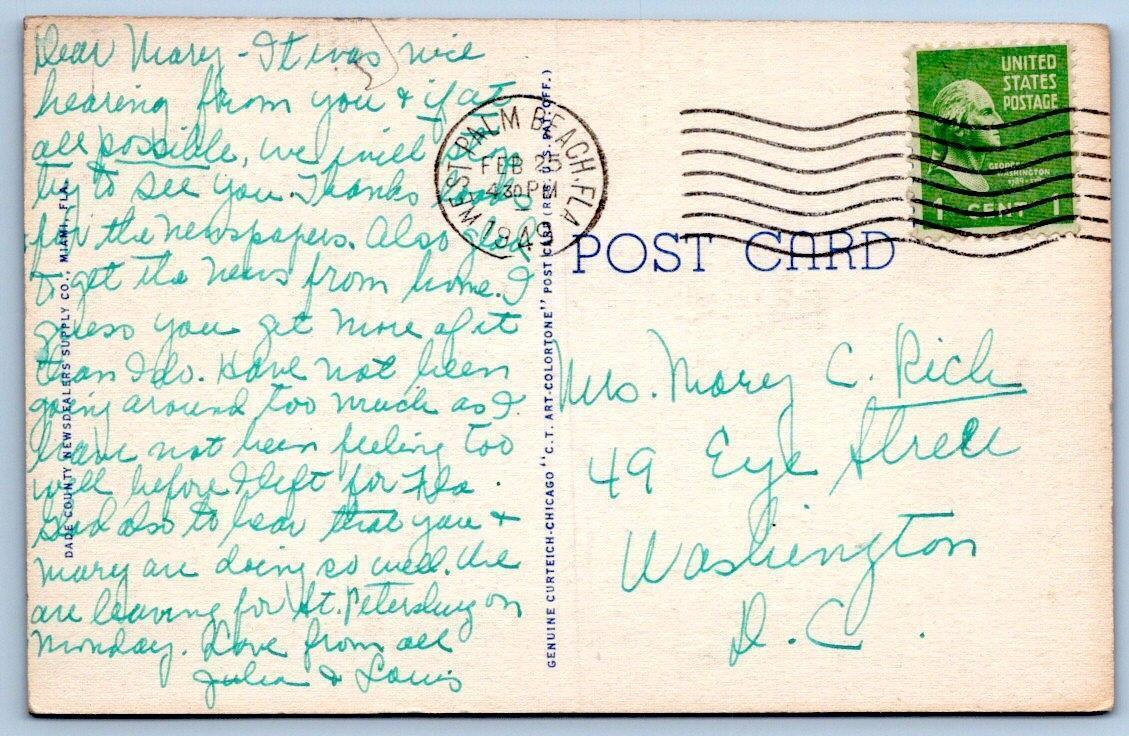 Dear Mary - It was nice
hearing from you & if at
all possible, we will
try to see you. Thanks loads
for the newspapers. Also glad
to get the news from home. I
guess you get more of it
than I do. Have not been
going around too much as I
have not been feeling too
well before I left for Fla.
Glad also to hear that you &
Mary are doing so well. We
are leaving for St. Petersburg on
Monday. Love from all
Julia & Louis
DADE COUNTY NEWSDEALERS SUPPLY CO., MIAMI, FLA.
GENUINE CURTEICH-CHICAGO "C.T. ART-COLORTONE" POST CARD (REG. U.S. PAT. OFF.)
WEST PALM BEACH, FLA
FEB 25
4 30 PM
194
UNITED
STATES
POSTAGE
GEORGE
WASHINGTON
1 CENT 1
POST CARD
Mrs. Mary C. Rich
49 Eye Street
Washington
D.C.